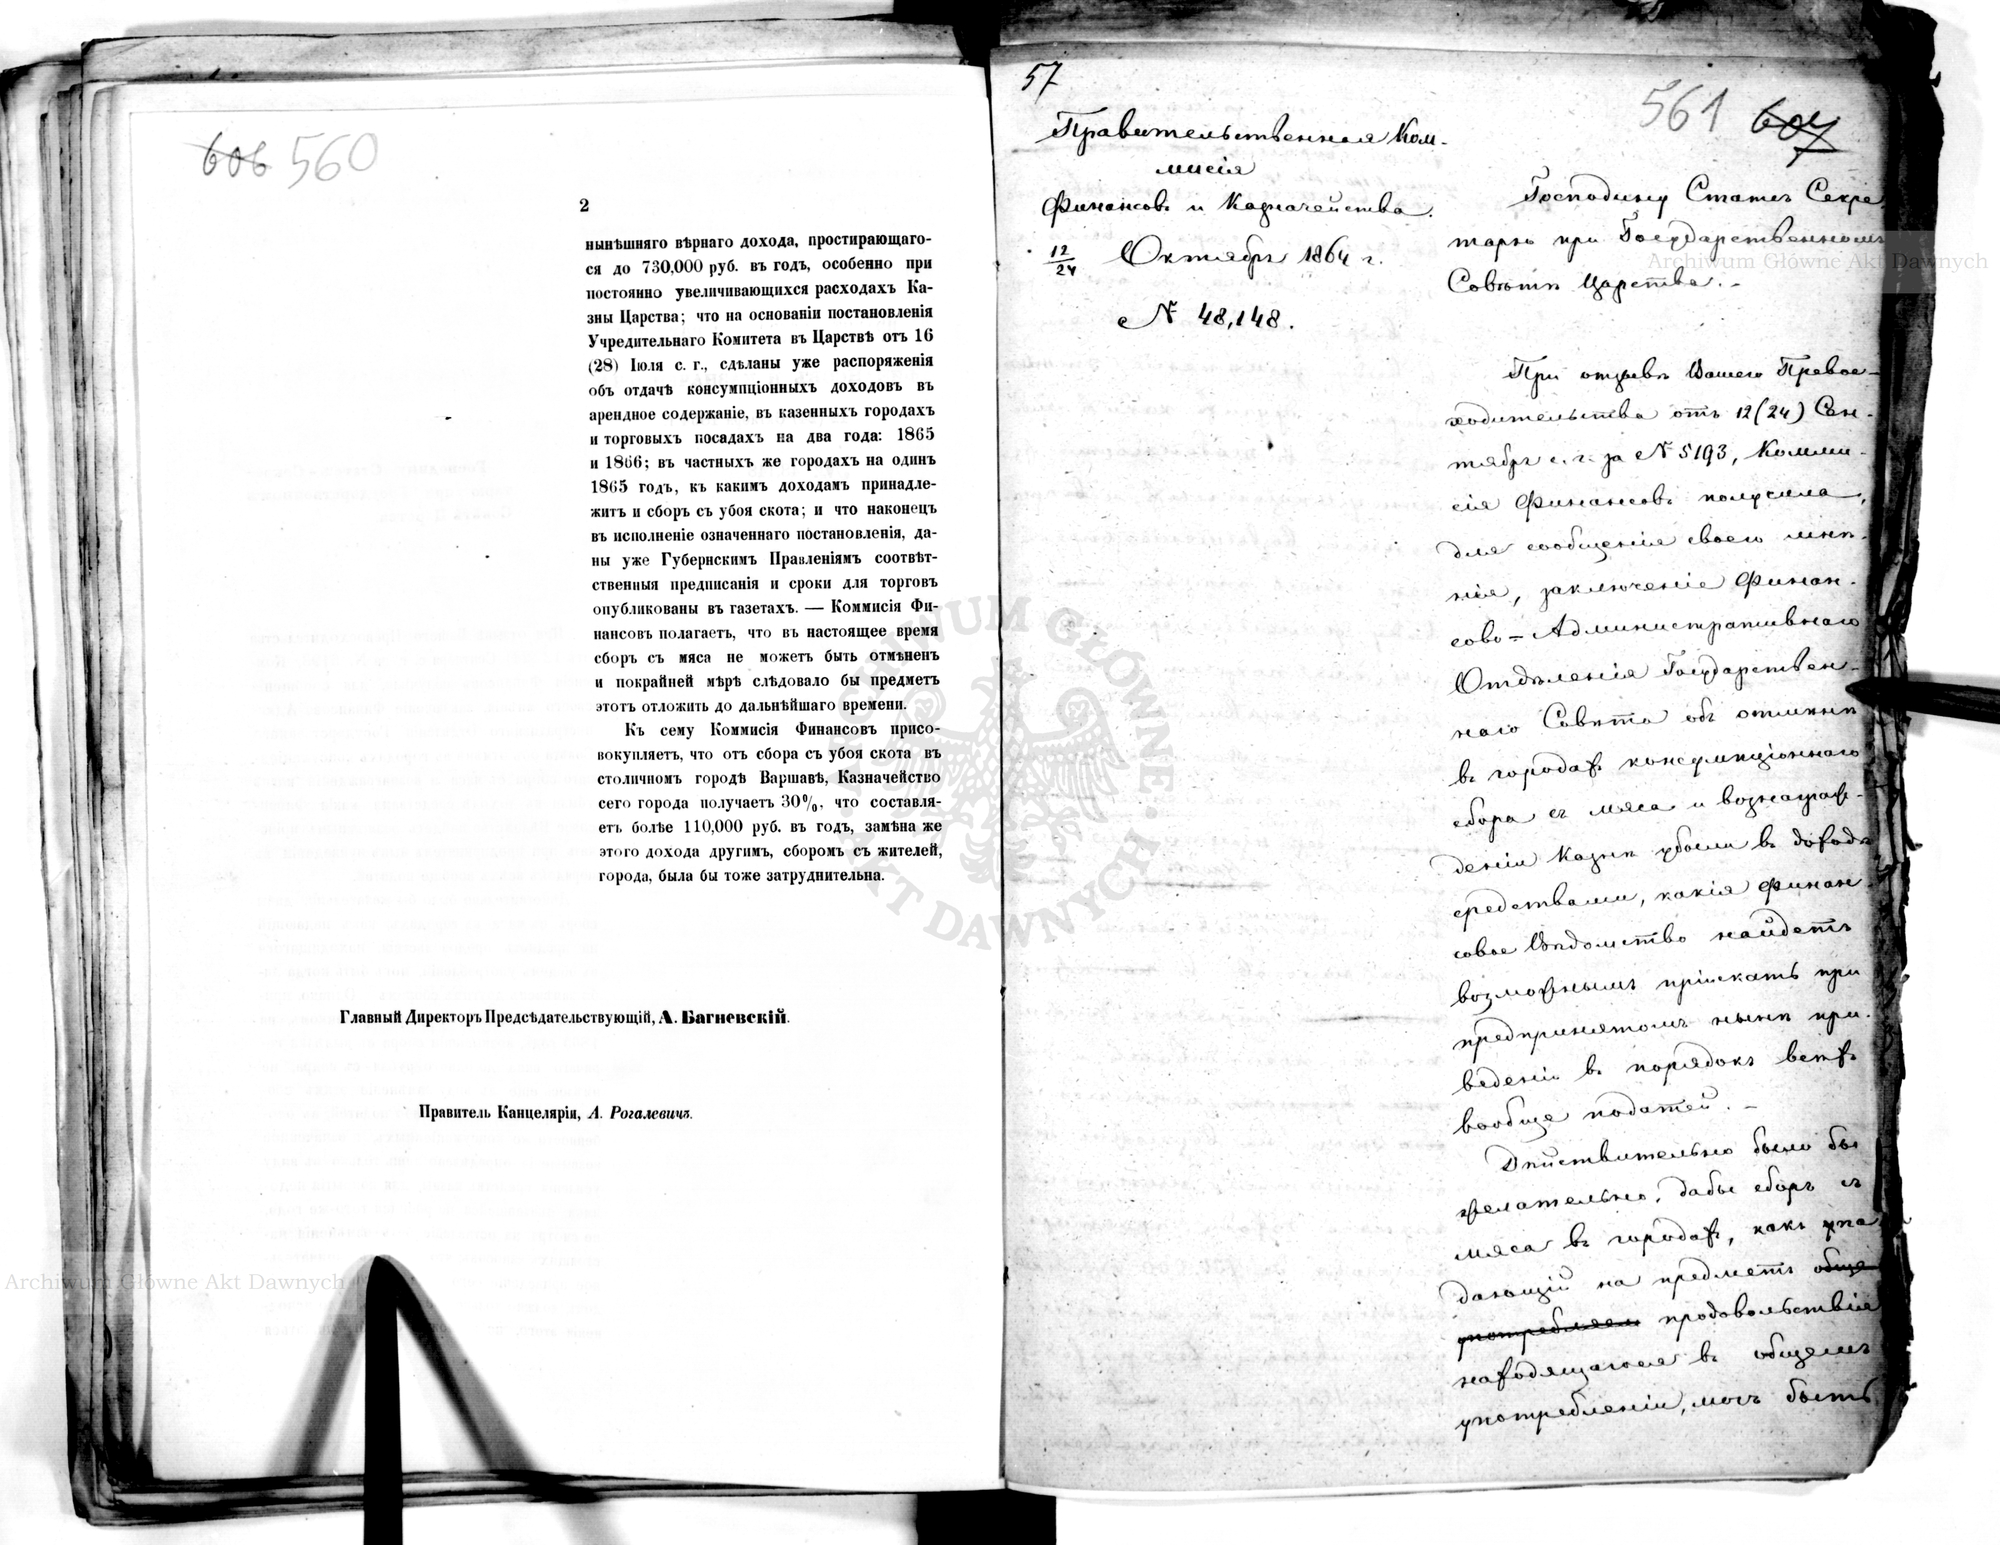 606 560
2
нынѣшняго вѣрнаго дохода, простирающаго-
ся до 730,000 руб. въ годъ, особенно при
постоянно увеличивающихся расходахъ Ка-
зны Царства; что на основаніи постановленія
Учредительнаго Комитета въ Царствѣ отъ 16
(28) Іюля с. г., сдѣланы уже распоряженія
объ отдачѣ консумпціонныхъ доходовъ въ
арендное содержаніе, въ казенныхъ городахъ
и торговыхъ посадахъ на два года: 1865
и 1866; въ частныхъ же городахъ на одинъ
1865 годъ, къ какимъ доходамъ принадле-
житъ и сборъ съ убоя скота; и что наконецъ
въ исполненіе означеннаго постановленія, да-
ны уже Губернскимъ Правленіямъ соотвѣт-
ственныя предписанія и сроки для торговъ
опубликованы въ газетахъ. — Коммисія Фи-
нансовъ полагаетъ, что въ настоящее время
сборъ съ мяса не можетъ быть отмѣненъ
и покрайней мѣрѣ слѣдовало бы предметъ
этотъ отложить до дальнѣйшаго времени.
Къ сему Коммисія Финансовъ присо-
вокупляетъ, что отъ сбора съ убоя скота въ
столичномъ городѣ Варшавѣ, Казначейство
сего города получаетъ 30%, что составля-
етъ болѣе 110,000 руб. въ годъ, замѣна же
этого дохода другимъ, сборомъ съ жителей,
города, была бы тоже затруднительна.
Главный Директоръ Предсѣдательствующій, А. Багневскій.
Правитель Канцеляріи, А. Рогалевичъ.
57
561 607
Правительственная Ком-
мисія
Финансовъ и Казначейства.
12/24 Октября 1864 г.
№ 48,148.
Господину Статсъ Секре
тарю при Государственномъ
Совѣтѣ Царства. -
При отзывѣ Вашего Превос-
ходительства отъ 12 (24) Сен-
тября с. г. за № 5193, Комми-
сія Финансовъ получила,
для сообщенія своего мнѣ-
нія, заключеніе Финан-
сово-Административнаго
Отдѣленія Государствен-
наго Совѣта объ отмѣнѣ
въ городахъ консумпціоннаго
сбора съ мяса и вознаграж-
деніи Казнѣ убыли въ доходѣ
средствами, какія Финан-
совое Вѣдомство найдетъ
возможнымъ пріискать при
предпринятомъ нынѣ при-
веденіи въ порядокъ всѣхъ
вообще податей. -
Дѣйствительно было бы
желательно, дабы сборъ съ
мяса въ городахъ, какъ упа
дающій на предметъ обще
употребляем продовольствія
находящагося въ общемъ
употребленіи, могъ быть
ARCHIWUM GŁÓWNE AKT DAWNYCH
Archiwum Główne Akt Dawnych
Archiwum Główne Akt Dawnych